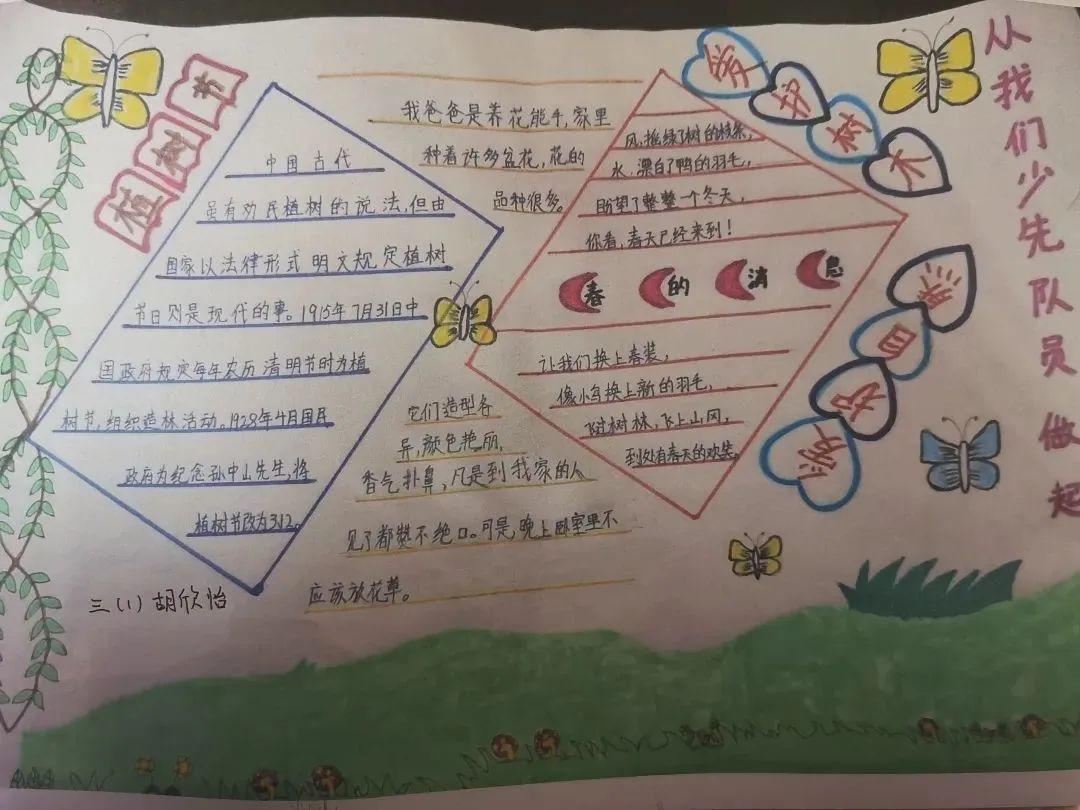 植树节
中国古代
虽有劝民植树的说法,但由
国家以法律形式明文规定植树
节日则是现代的事。1915年7月31日中
国政府规定每年农历清明节时为植
树节,组织造林活动。1928年4月国民
政府为纪念孙中山先生,将
植树节改为3.12。
三(1)胡欣怡
我爸爸是养花能手,家里
种着许多盆花,花的
品种很多。
它们造型各
异,颜色艳丽,
香气扑鼻,凡是到我家的人
见了都赞不绝口。可是,晚上卧室里不
应该放花草。
风,摇绿了树的枝条,
水,漂白了鸭的羽毛,
盼望了整整一个冬天,
你看,春天已经来到!
春的消息
让我们换上春装,
像小鸟换上新的羽毛,
飞过树林,飞上山冈,
到处有春天的欢笑。
爱护树木
爱护自然
从我们少先队员做起